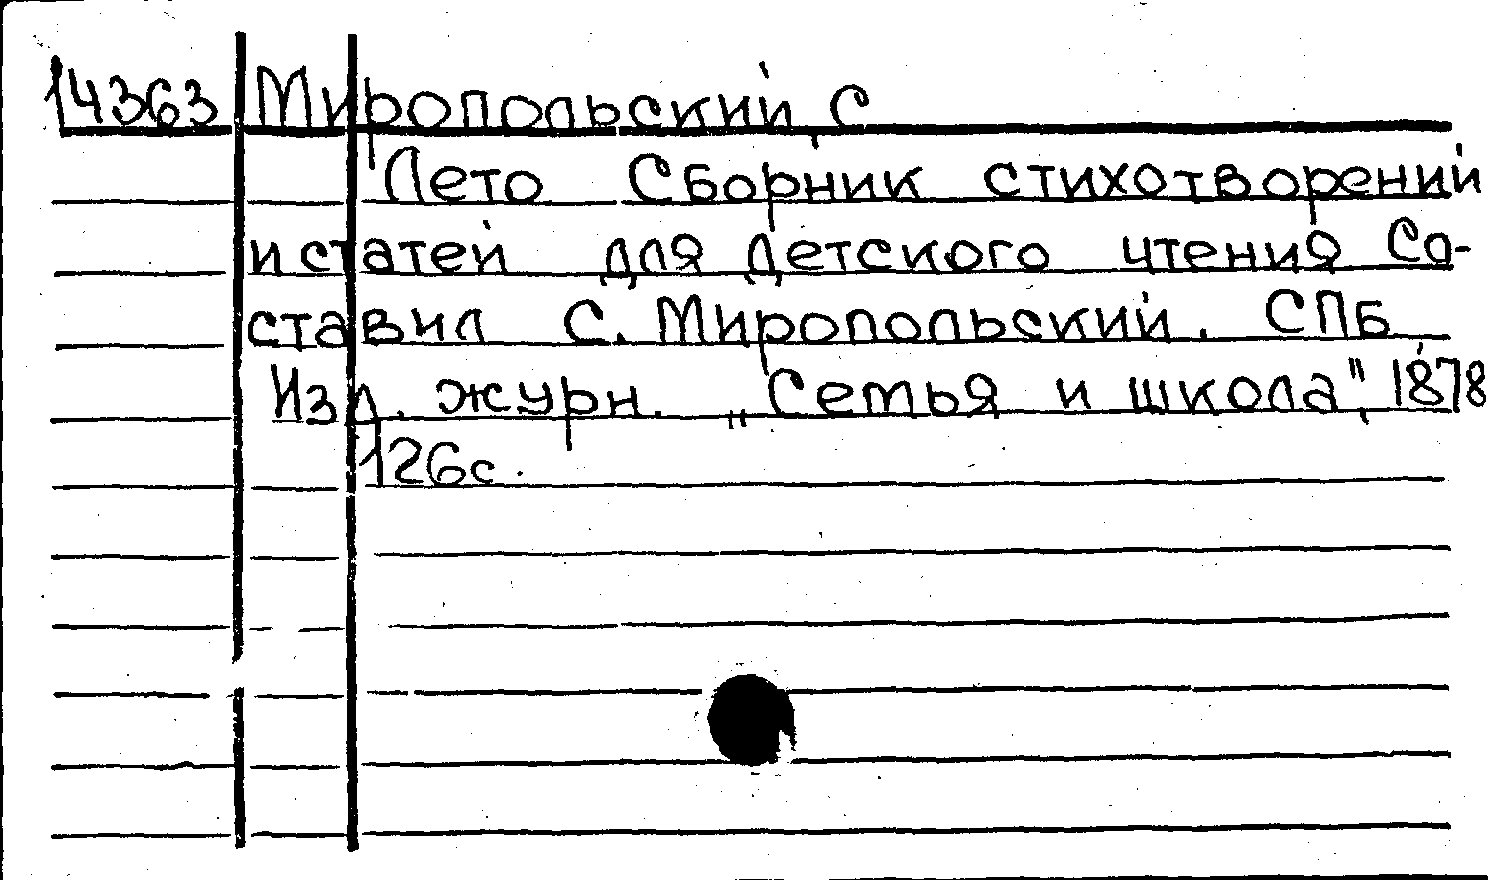 14363 Миропольский, С
Лето Сборник стихотворений
и статей для детского чтения Со-
ставил С. Миропольский. СПБ
Изд. журн. „Семья и школа", 1878
126с.